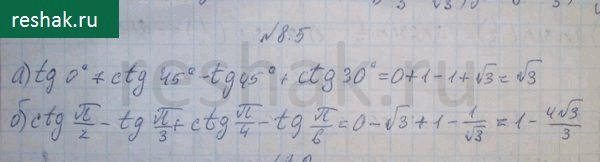 reshak.ru
№8.5
а) tg 0° + ctg 45° - tg 45° + ctg 30° = 0 + 1 - 1 + √3 = √3
б) ctg π/2 - tg π/3 + ctg π/4 - tg π/6 = 0 - √3 + 1 - 1/√3 = 1 - 4√3/3
reshak.ru